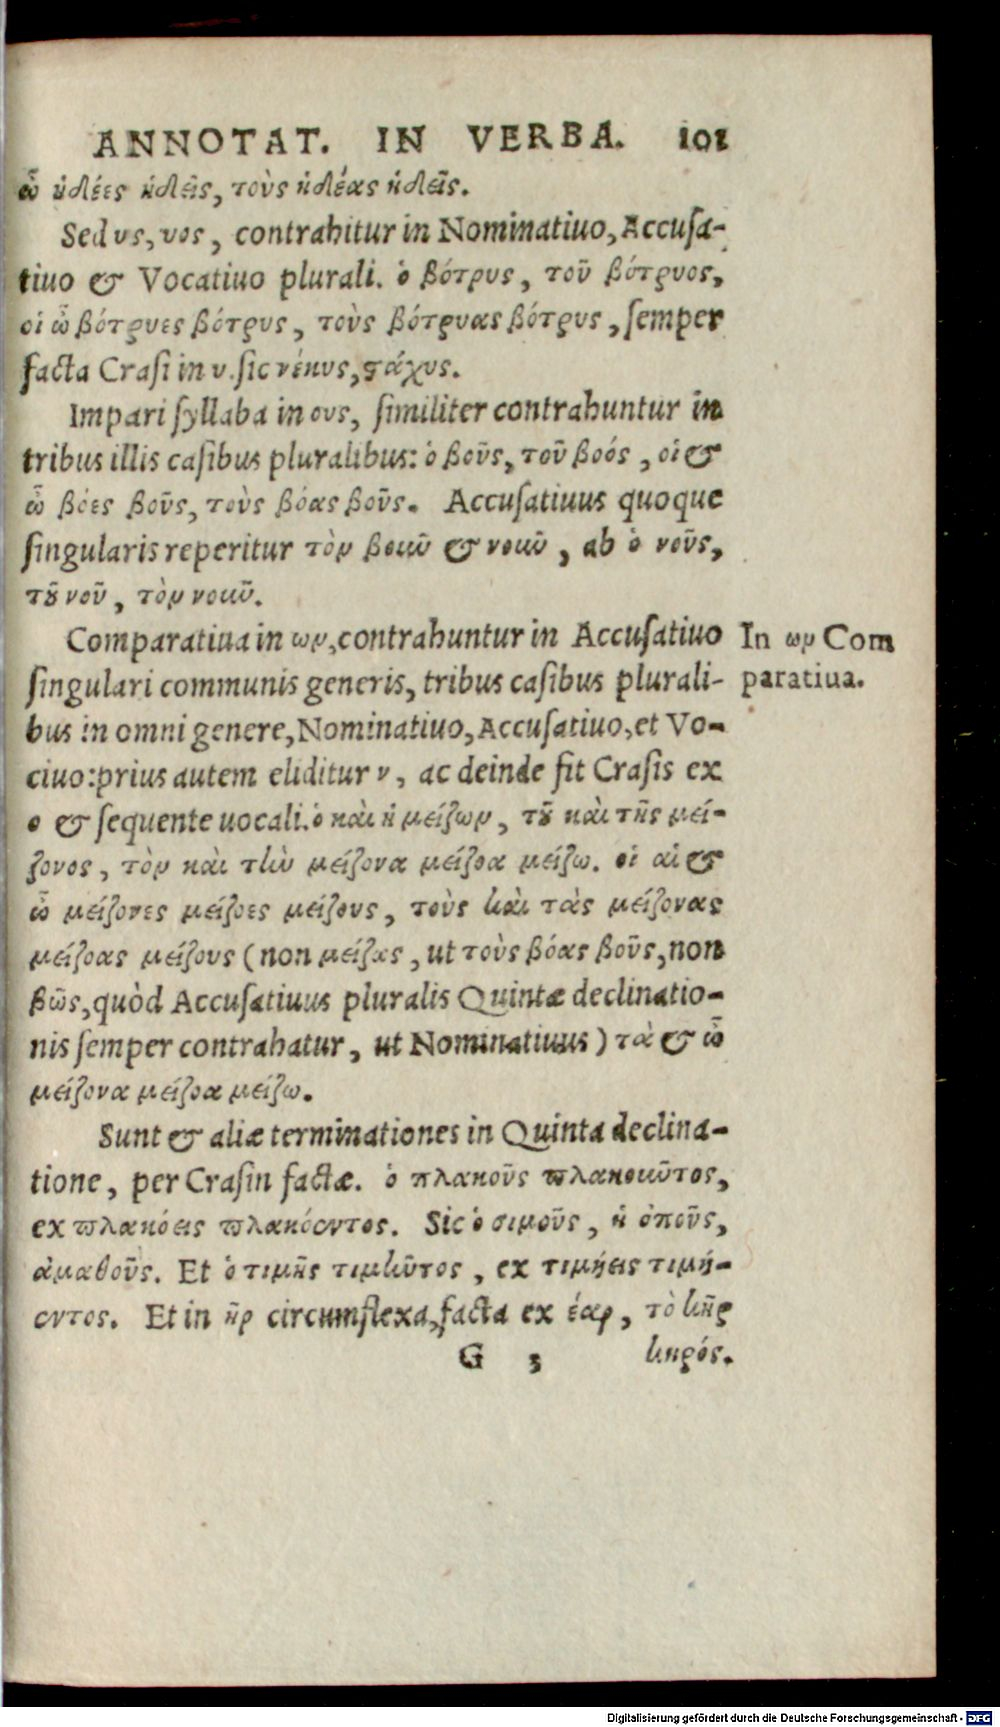 ANNOTAT. IN VERBA. 101
ὦ ἡδέες ἡδεῖς, τοὺς ἡδέας ἡδεῖς.
Sed υς, υος, contrahitur in Nominatiuo, Accusa-
tiuo & Vocatiuo plurali. ὁ βότρυς, τοῦ βότρυος,
οἱ ὦ βότρυες βότρυς, τοὺς βότρυας βότρυς, semper
facta Crasi in υ. sic νέκυς, ϛάχυς.
Impari syllaba in ους, similiter contrahuntur in
tribus illis casibus pluralibus: ὁ βοῦς, τοῦ βοός, οἱ &
ὦ βόες βοῦς, τοὺς βόας βοῦς. Accusatiuus quoque
singularis reperitur τὸν βοιῶ & νοιῶ, ab ὁ νοῦς,
τȣ͂ νοῦ, τὸν νοιῶ.
Comparatiua in ων, contrahuntur in Accusatiuo
singulari communis generis, tribus casibus plurali-
bus in omni genere, Nominatiuo, Accusatiuo, et Vo-
ciuo: prius autem eliditur ν, ac deinde fit Crasis ex
ο & sequente uocali. ὁ καὶ ἡ μείζων, τȣ͂ καὶ τῆς μεί-
ζονος, τὸν καὶ τὴν μείζονα μείζοα μείζω. οἱ αἱ &
ὦ μείζονες μείζοες μείζους, τοὺς καὶ τὰς μείζονας
μείζοας μείζους (non μείζας, ut τοὺς βόας βοῦς, non
βῶς, quòd Accusatiuus pluralis Quintæ declinatio-
nis semper contrahatur, ut Nominatiuus) τὰ & ὦ
μείζονα μείζοα μείζω.
Sunt & aliæ terminationes in Quinta declina-
tione, per Crasin factæ. ὁ πλακοῦς πλακοιῶτος,
ex πλακόεις πλακόεντος. Sic ὁ σιμοῦς, ἡ ὀποῦς,
ἀμαθοῦς. Et ὁ τιμῆς τιμῆντος, ex τιμήεις τιμή-
εντος. Et in ῆρ circumflexa, facta ex έαρ, τὸ κῆρ
G 3 κηρός.
In ων Com
paratiua.
Digitalisierung gefördert durch die Deutsche Forschungsgemeinschaft - DFG